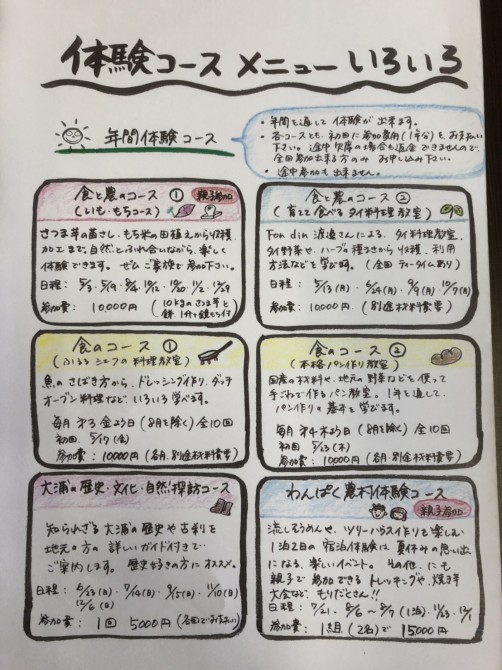 体験コース メニュー いろいろ
年間体験コース
・年間を通して 体験が 出来ます。
・各コースとも、初回に参加費用(1年分)をお支払い
下さい。途中欠席の場合も返金できませんので、
全回参加出来る方のみ お申し込み下さい。
・途中参加も出来ません。
食と農のコース ①
親子参加
(いも・もちコース)
さつま芋の苗さし、もち米の田植えから収穫、
加工まで。自然とふれ合いながら、楽しく
体験できます。ぜひご家族で参加下さい。
日程:
参加費: 10,000円
(10kgのさつま芋と
食と農のコース ②
(育てて食べる タイ料理教室)
Fon din 渡邉さんによる、タイ料理教室。
タイ野菜や、ハーブの種まきから収穫、利用
方法などを学びます。(全回 ティータイムあり)
日程: 5/13(月)・6/24(月)・9/9(月)・10/7(月)
参加費: 10,000円 (別途材料費要)
食のコース ①
(ふるる シェフの料理教室)
魚のさばき方から、ドレッシング作り、ダッチ
オーブン料理など、いろいろ学べます。
毎月 第3 金曜日 (8月を除く) 全10回
初回. 5/17 (金)
参加費: 10000円 (各月、別途材料費要)
食のコース ②
(本格パン作り教室)
国産の材料や、地元の野菜などを使って
手ごねで作るパン教室。1年を通して、
パン作りの基本を学びます。
毎月 第4 木曜日 (8月を除く) 全10回
初回 5/23 (木)
参加費: 10000円 (各月、別途材料費要)
大浦の歴史・文化・自然探訪コース
知られざる大浦の歴史や古刹を
地元の方の詳しいガイド付きで
ご案内します。歴史好きの方にオススメ。
日程: 6/23(日)・7/14(日)・9/15(日)・11/10(日)
12/8(日)
参加費: 1回 5000円
わんぱく農村体験コース
親子参加
流しそうめんや、ツリーハウス作りを楽しむ
1泊2日の宿泊体験は夏休みの思い出
になる、楽しいイベント。その他、にも
親子で参加できるトレッキングや、焼き芋
大会など、もりだくさん!!
日程: 7/21・8/6〜8/7 (1泊)・11/23・12/1
参加費: 1組(2名)で 15000円